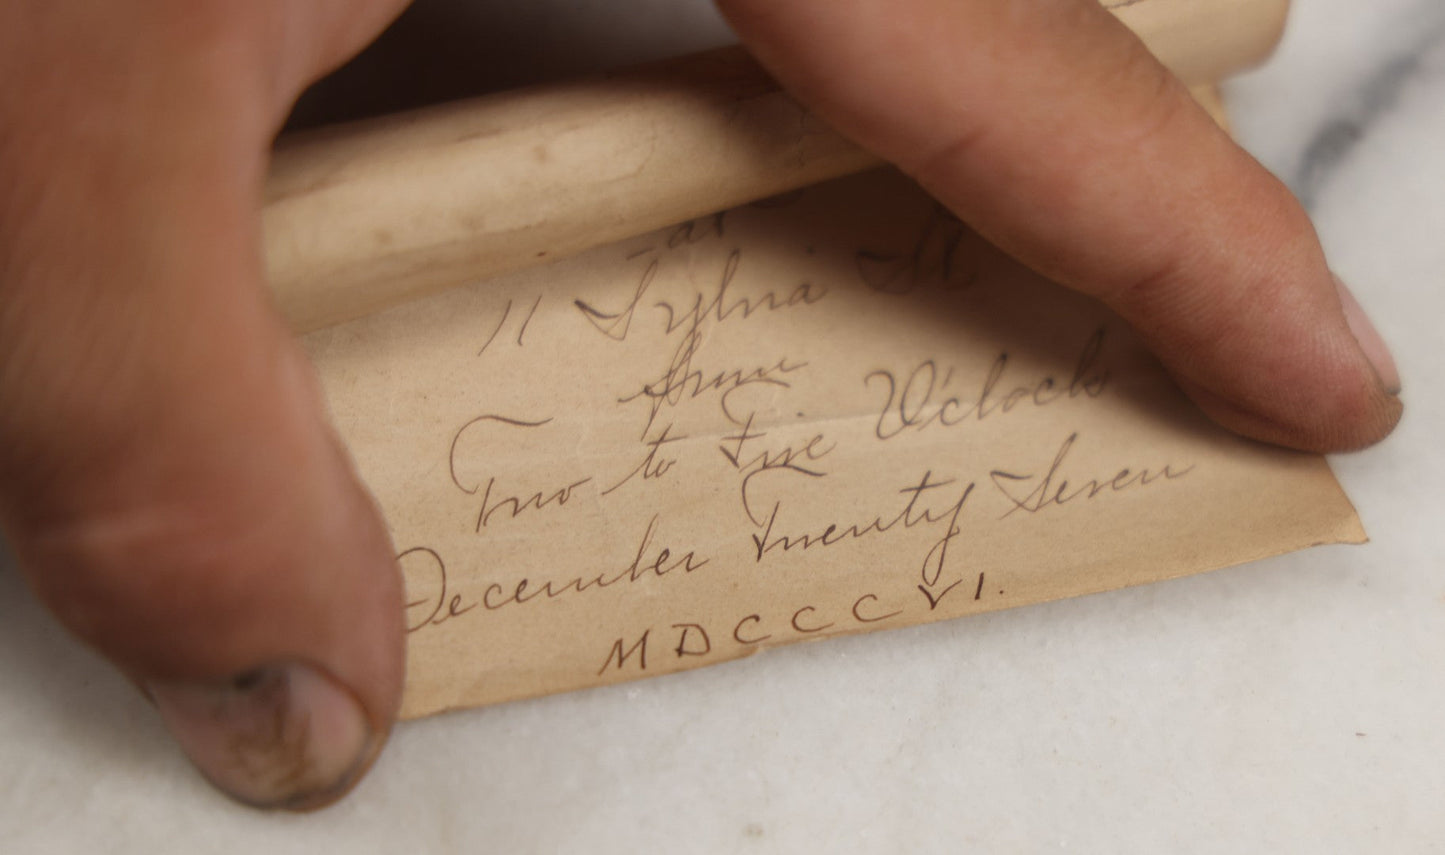 at
11 Sylvia St
from
Two to Five O'clock
December Twenty Seven
MDCCCVI.